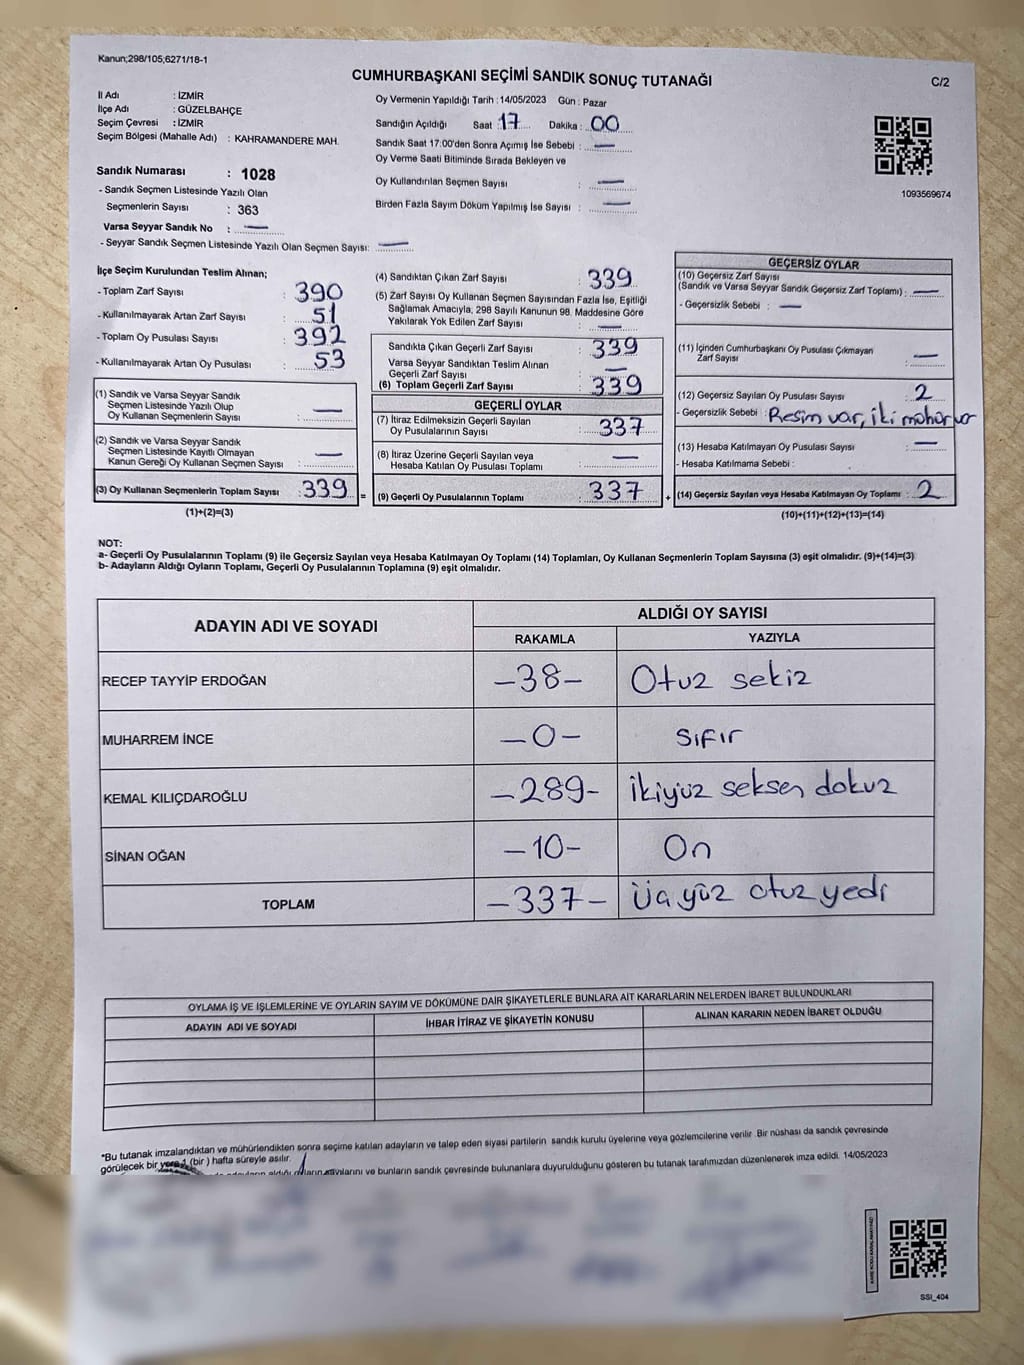 Kanun;298/105;6271/18-1
CUMHURBAŞKANI SEÇİMİ SANDIK SONUÇ TUTANAĞI
C/2
İl Adı : İZMİR
İlçe Adı : GÜZELBAHÇE
Seçim Çevresi : İZMİR
Seçim Bölgesi (Mahalle Adı) : KAHRAMANDERE MAH.
Sandık Numarası : 1028
- Sandık Seçmen Listesinde Yazılı Olan
Seçmenlerin Sayısı : 363
Varsa Seyyar Sandık No : —
- Seyyar Sandık Seçmen Listesinde Yazılı Olan Seçmen Sayısı: —
Oy Vermenin Yapıldığı Tarih : 14/05/2023 Gün : Pazar
Sandığın Açıldığı Saat : 17 Dakika : 00
Sandık Saat 17:00'den Sonra Açımış İse Sebebi : —
Oy Verme Saati Bitiminde Sırada Bekleyen ve
Oy Kullandırılan Seçmen Sayısı : —
Birden Fazla Sayım Döküm Yapılmış İse Sayısı : —
1093569674
İlçe Seçim Kurulundan Teslim Alınan;
- Toplam Zarf Sayısı : 390
- Kullanılmayarak Artan Zarf Sayısı : 51
- Toplam Oy Pusulası Sayısı : 392
- Kullanılmayarak Artan Oy Pusulası : 53
(1) Sandık ve Varsa Seyyar Sandık
Seçmen Listesinde Yazılı Olup
Oy Kullanan Seçmenlerin Sayısı : —
(2) Sandık ve Varsa Seyyar Sandık
Seçmen Listesinde Kayıtlı Olmayan
Kanun Gereği Oy Kullanan Seçmen Sayısı : —
(3) Oy Kullanan Seçmenlerin Toplam Sayısı : 339 =
(1)+(2)=(3)
(4) Sandıktan Çıkan Zarf Sayısı : 339
(5) Zarf Sayısı Oy Kullanan Seçmen Sayısından Fazla İse, Eşitliği
Sağlamak Amacıyla, 298 Sayılı Kanunun 98. Maddesine Göre
Yakılarak Yok Edilen Zarf Sayısı : —
Sandıkta Çıkan Geçerli Zarf Sayısı : 339
Varsa Seyyar Sandıktan Teslim Alınan
Geçerli Zarf Sayısı : —
(6) Toplam Geçerli Zarf Sayısı : 339
GEÇERLİ OYLAR
(7) İtiraz Edilmeksizin Geçerli Sayılan
Oy Pusulalarının Sayısı : 337
(8) İtiraz Üzerine Geçerli Sayılan veya
Hesaba Katılan Oy Pusulası Toplamı : —
(9) Geçerli Oy Pusulalarının Toplamı : 337 +
GEÇERSİZ OYLAR
(10) Geçersiz Zarf Sayısı
(Sandık ve Varsa Seyyar Sandık Geçersiz Zarf Toplamı) : —
- Geçersizlik Sebebi : —
(11) İçinden Cumhurbaşkanı Oy Pusulası Çıkmayan
Zarf Sayısı : —
(12) Geçersiz Sayılan Oy Pusulası Sayısı : 2
- Geçersizlik Sebebi : Resim var, iki mühür var
(13) Hesaba Katılmayan Oy Pusulası Sayısı : —
- Hesaba Katılmama Sebebi :
(14) Geçersiz Sayılan veya Hesaba Katılmayan Oy Toplamı : 2
(10)+(11)+(12)+(13)=(14)
NOT:
a- Geçerli Oy Pusulalarının Toplamı (9) ile Geçersiz Sayılan veya Hesaba Katılmayan Oy Toplamı (14) Toplamları, Oy Kullanan Seçmenlerin Toplam Sayısına (3) eşit olmalıdır. (9)+(14)=(3)
b- Adayların Aldığı Oyların Toplamı, Geçerli Oy Pusulalarının Toplamına (9) eşit olmalıdır.
ADAYIN ADI VE SOYADI ALDIĞI OY SAYISI
RAKAMLA YAZIYLA
RECEP TAYYİP ERDOĞAN -38- Otuz sekiz
MUHARREM İNCE -0- Sıfır
KEMAL KILIÇDAROĞLU -289- İkiyüz seksen dokuz
SİNAN OĞAN -10- On
TOPLAM -337- Üç yüz otuz yedi
OYLAMA İŞ VE İŞLEMLERİNE VE OYLARIN SAYIM VE DÖKÜMÜNE DAİR ŞİKAYETLERLE BUNLARA AİT KARARLARIN NELERDEN İBARET BULUNDUKLARI
ADAYIN ADI VE SOYADI İHBAR İTİRAZ VE ŞİKAYETİN KONUSU ALINAN KARARIN NEDEN İBARET OLDUĞU
*Bu tutanak imzalandıktan ve mühürlendikten sonra seçime katılan adayların ve talep eden siyasi partilerin sandık kurulu üyelerine veya gözlemcilerine verilir. Bir nüshası da sandık çevresinde
görülecek bir yere 1 (bir) hafta süreyle asılır.
aldığı oyların sayılarını ve bunların sandık çevresinde bulunanlara duyurulduğunu gösteren bu tutanak tarafımızdan düzenlenerek imza edildi. 14/05/2023
SSİ_404